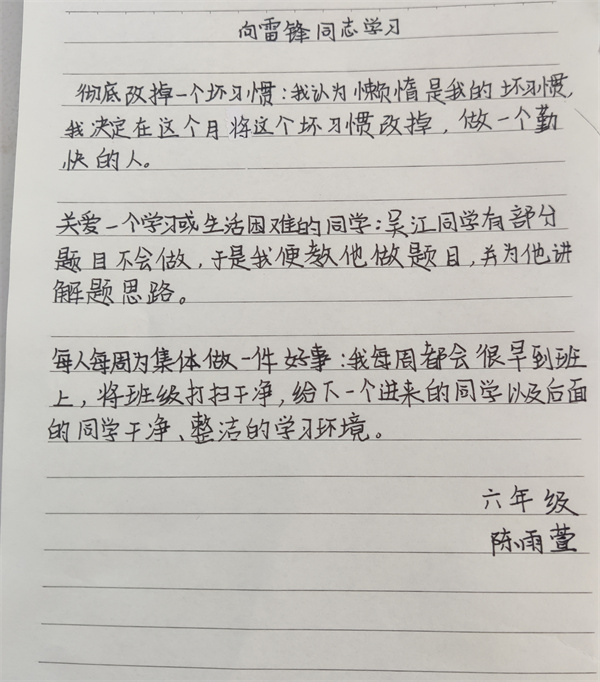 向雷锋同志学习
彻底改掉一个坏习惯:我认为懒惰是我的坏习惯,
我决定在这个月将这个坏习惯改掉,做一个勤
快的人。
关爱一个学习或生活困难的同学:吴江同学有部分
题目不会做,于是我便教他做题目,并为他讲
解题思路。
每人每周为集体做一件好事:我每周都会很早到班
上,将班级打扫干净,给下一个进来的同学以及后面
的同学干净、整洁的学习环境。
六年级
陈雨萱